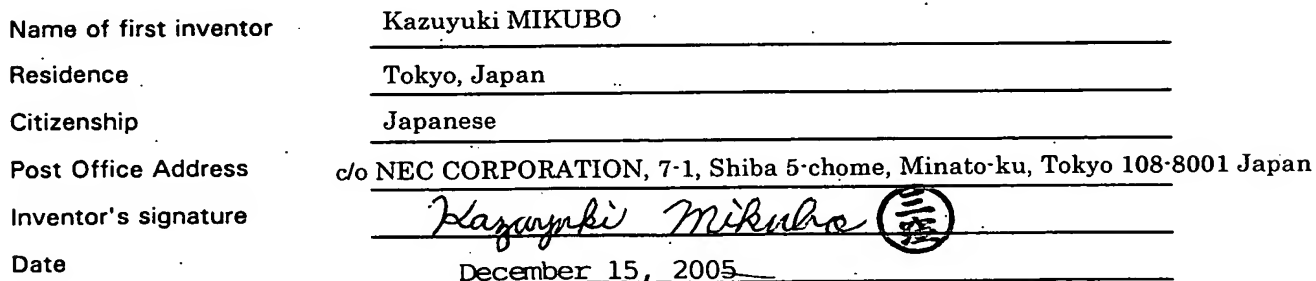 Name of first inventor Kazuyuki MIKUBO
Residence Tokyo, Japan
Citizenship Japanese
Post Office Address c/o NEC CORPORATION, 7-1, Shiba 5-chome, Minato-ku, Tokyo 108-8001 Japan
Inventor's signature Kazuyuki Mikubo 三窪
Date December 15, 2005